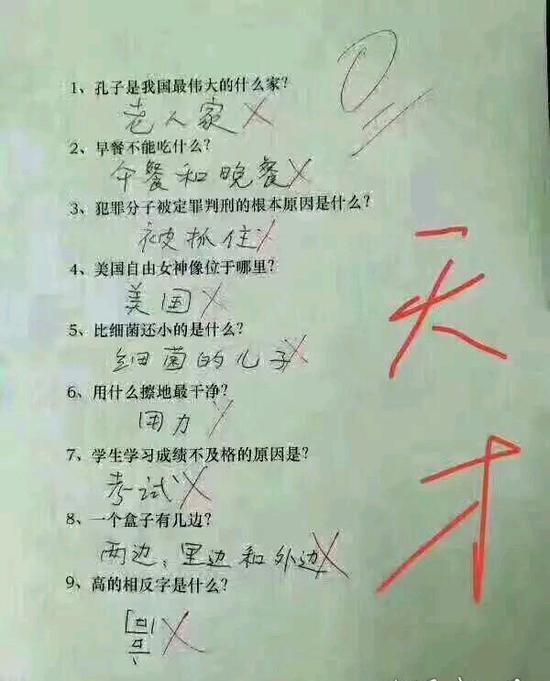 0
1、孔子是我国最伟大的什么家?
老人家
2、早餐不能吃什么?
午餐和晚餐
3、犯罪分子被定罪判刑的根本原因是什么?
被抓住
4、美国自由女神像位于哪里?
美国
5、比细菌还小的是什么?
细菌的儿子
6、用什么擦地最干净?
用力
7、学生学习成绩不及格的原因是?
考试
8、一个盒子有几边?
两边,里边和外边
9、高的相反字是什么?
天才